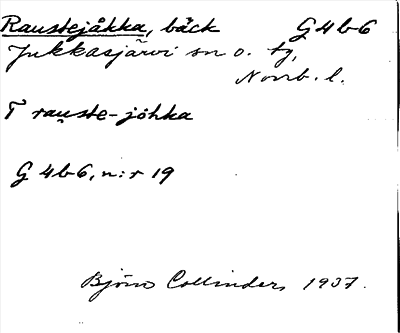 Raustejåkka, bäck G4b6
Jukkasjärvi sn o. tg,
Norrb. l.
T rau̯ste-jöhka
G 4b6, n:r 19
Björn Collinder, 1937.